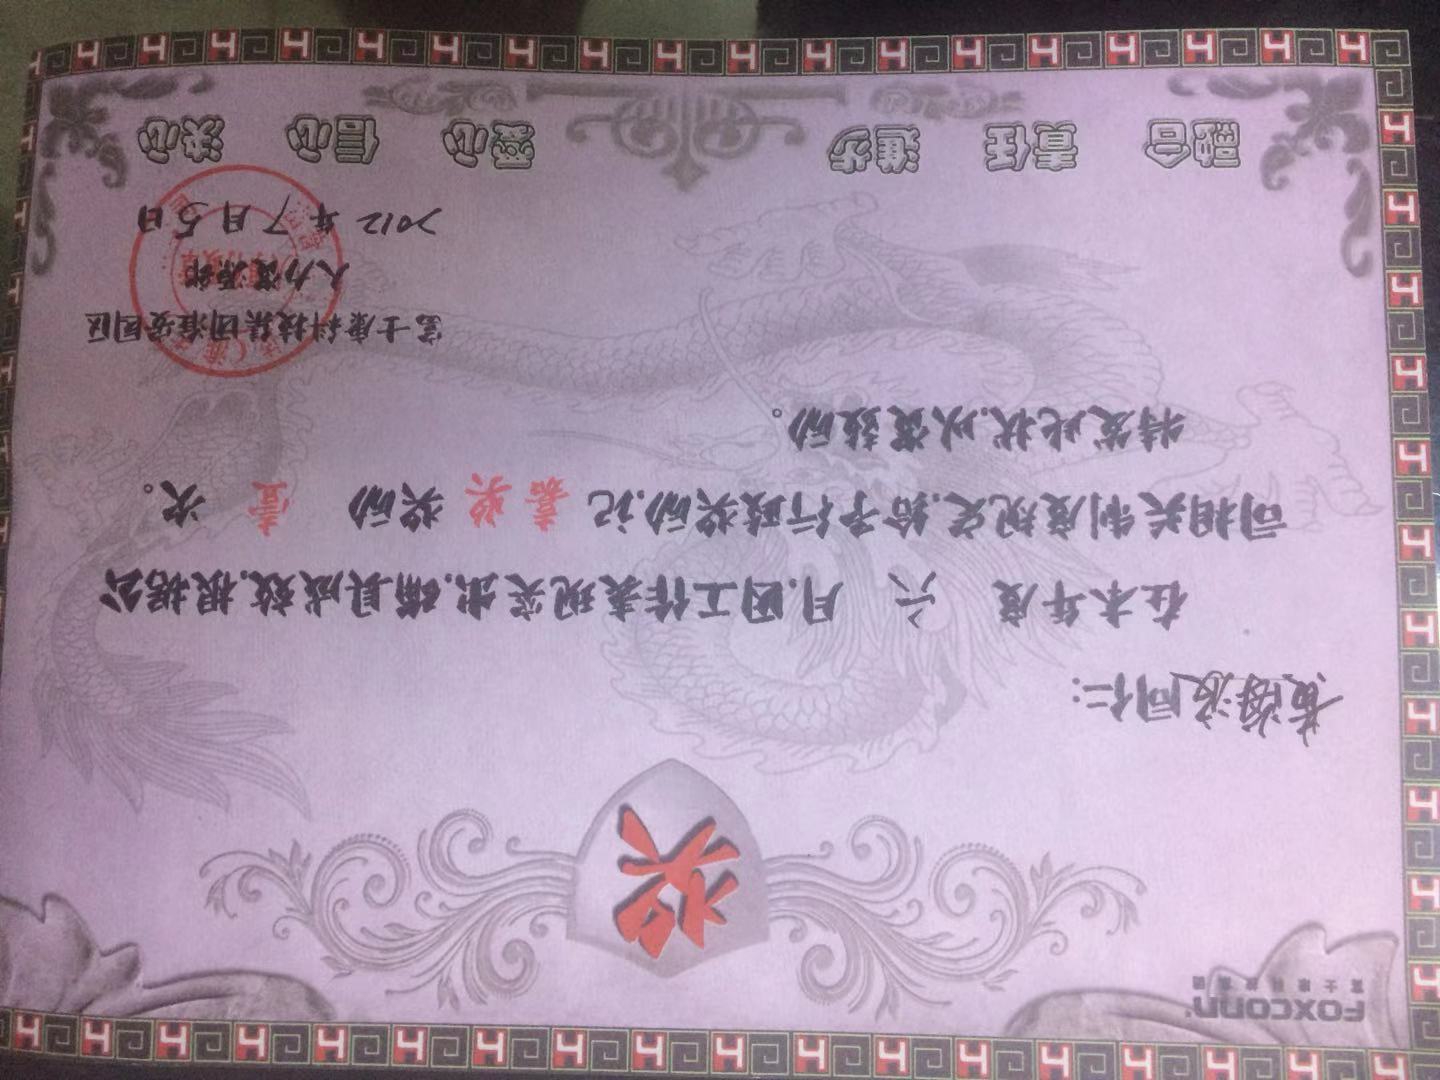 FOXCONN
富士康科技集團
奖
黄海波同仁:
在本年度 六 月,因工作表现突出,确具成效,根据公
司相关制度规定,给予行政奖励,记 嘉奖 奖励 壹 次。
特发此状,以资鼓励。
富士康科技集团淮安园区
人力资源部
2012年7月5日
融合 責任 進步 愛心 信心 决心